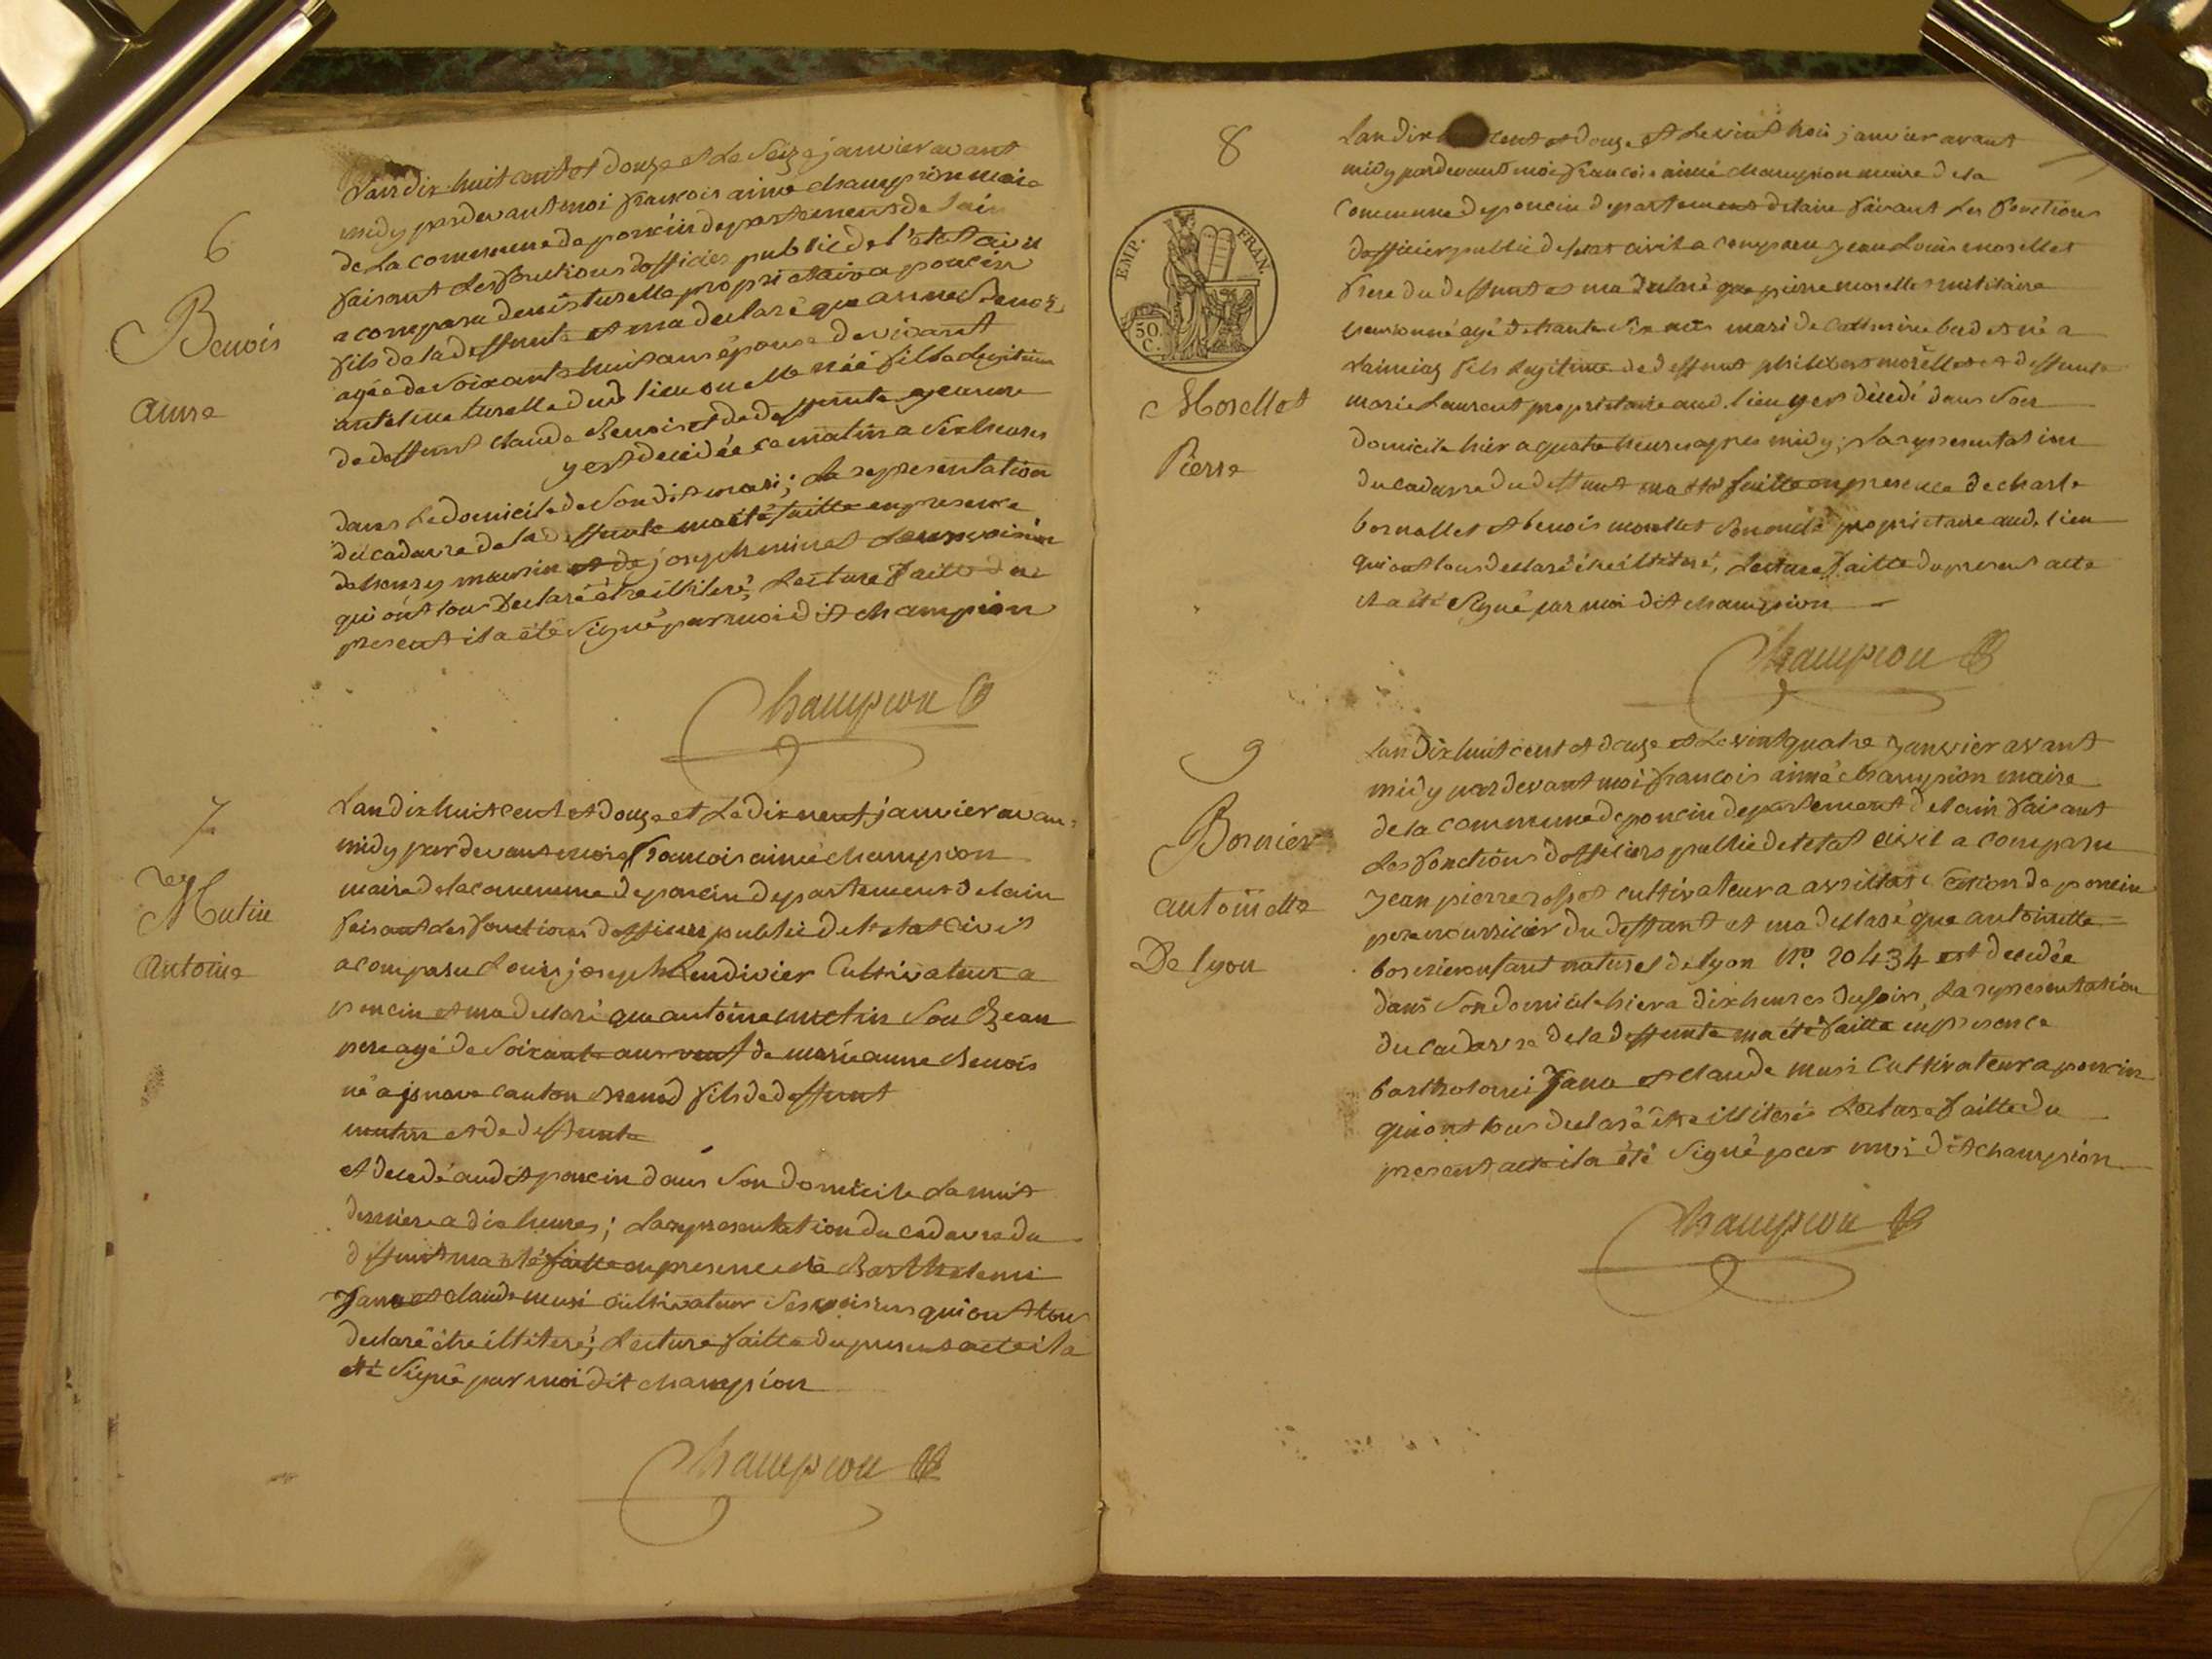 6
Benois
anne
Lan dix huit cent et douze et Le Seize janvier avant
midy pardevant moi francois aimé champion maire
de La commune de poncin departement de lain
faisant Les fonctions dofficier public de l'etat civil
a comparu denis turella proprietaire a poncin
fils de la deffunte et ma declaré que anne Benois
agée de soixante huit ans épouse de vivant
antelme turella dud lieu ou elle née fille legitime
de deffunt claude Benois et de deffunte
y est decedée ce matin a six heures
dans Le domicile de Son dit mari; La representation
du cadavre de la deffunte ma été faitte en presence
de mauvin et de joseph minet
qui ont tous Declaré être illiteré, Lecture faitte du
present il a été Signé par moi dit champion
Champion
7
Mutin
antoine
Lan dix huit cent et douze et Le dix neuf janvier avan
midy par devant moi francois aimé champion
maire de la commune de poncin departement de lain
faisant les fonctions dofficier public de letat civil
a comparu Louis joseph Cultivateur a
poncin et ma declaré que antoine mutin Son Beau
pere agé de Soixante ans veuf de marie anne Benois
né a canton fils de deffunt
mutin et de deffunte
et decedé audit poncin dans Son domicile La nuit
derniere a dix heures; La representation du cadavre du
deffunt ma été faitte en presence de Barthelemi
Jano et claude musi cultivateur Ses voisins qui ont tous
declaré être illiteré; Lecture faitte du present acte il a
été Signé par moi dit champion
Champion
8
EMP. FRAN.
50 C.
Morellet
Pierre
Lan dix cent et douze et Le vint trois janvier avant
midy pardevant moi francois aimé champion maire de la
Commune de poncin departement de lain faisant Les fonctions
dofficier public de letat civil a comparu jean Louis morellet
frere du deffunt et ma declaré que pierre morellet militaire
pensionné agé de trante Six ans mari de Catherine né a
fils Legitime de deffunt philibert morellet et deffunte
marie Laurent proprietaire aud. lieu y est décedé dans Son
domicile hier a quatre heures apres midy; La representation
du cadavre du deffunt ma été faitte en presence de charle
bornallet et benois morellet proprietaire aud. lieu
qui ont tous declaré être illiteré, Lecture faitte du present acte
il a été Signé par moi dit champion
Champion
9
Bornier
antoinette
De lyon
Lan dix huit cent et douze et Le vint quatre janvier avant
midy par devant moi francois aimé champion maire
de la commune de poncin departement de lain faisant
Les fonctions dofficiers public de letat civil a comparu
Jean pierre cultivateur a Section de poncin
pere nourricier du deffunt et ma declaré que antoinette
bornier enfant naturel de lyon N.o 20434 est decedée
dans Son domicile hier a dix heures du soir, La representation
du cadavre de la deffunte ma été faitte en presence
bartholomi Jano et claude musi Cultivateur a poncin
qui ont tous declaré être illiteré Lecture faitte du
present acte il a été Signé par moi dit champion
Champion